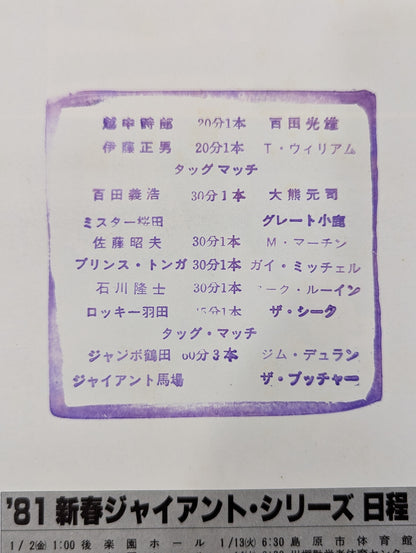 幹郎 20分1本 百田光雄
伊藤正男 20分1本 T・ウィリアム
タッグマッチ
百田義浩 30分1本 大熊元司
ミスター桜田 グレート小鹿
佐藤昭夫 30分1本 M・マーチン
プリンス・トンガ 30分1本 ガイ・ミッチェル
石川隆士 30分1本 ーク・ルーイン
ロッキー羽田 5分1本 ザ・シーク
タッグ・マッチ
ジャンボ鶴田 60分3本 ジム・デュラン
ジャイアント馬場 ザ・ブッチャー
'81 新春ジャイアント・シリーズ 日程
1/2㊎ 1:00 後楽園ホール 1/13㊋ 6:30 島原市体育館